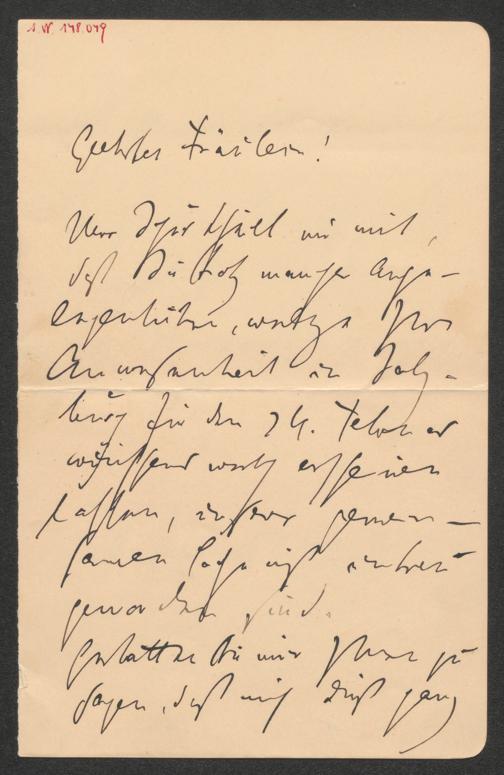 I. N. 148.079
Geehrtes Fräulein!
Herr theilt mir mit,
daß Sie trotz mancher Ange-
legenheiten, welche Ihre
Anwesenheit in Salz-
burg für den 24. Februar
wünschenswerth erscheinen
lassen, unserer gemein-
samen Sache nicht untreu
geworden sind.
Gestatten Sie mir Ihnen zu
sagen, daß mich dieß ganz